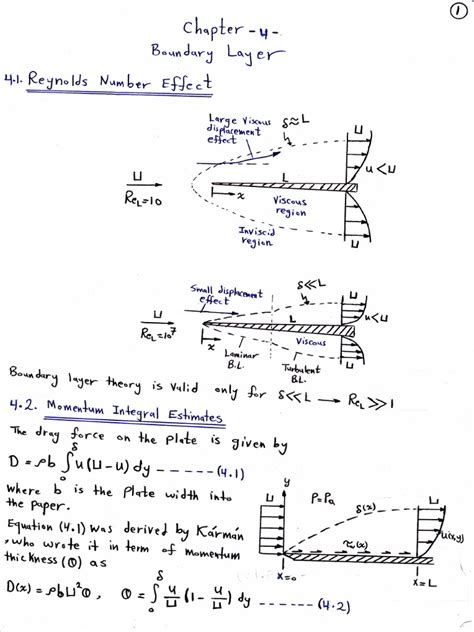 1
Chapter - 4 -
Boundary Layer
4.1. Reynolds Number Effect
Large Viscous
displacement
effect
δ≈L
U
u<U
L
U
Re_L=10
x
Viscous
region
Inviscid
region
U
Small displacement
effect
δ≪L
U
u<U
U
L
Re_L=10^7
x
Viscous
Laminar
B.L.
Turbulent
B.L.
U
Boundary layer theory is Valid only for δ≪L → Re_L≫1
4.2. Momentum Integral Estimates
The drag force on the plate is given by
D = ρb ∫_0^δ u(U-u) dy ----- (4.1)
where b is the plate width into
the paper.
Equation (4.1) was derived by Kármán
, who wrote it in term of momentum
thickness (θ) as
D(x) = ρbU²θ , θ = ∫_0^δ u/U (1 - u/U) dy ------ (4.2)
y
U
P=Pa
δ(x)
U
u(x,y)
τ_w(x)
x
x=0
x=L